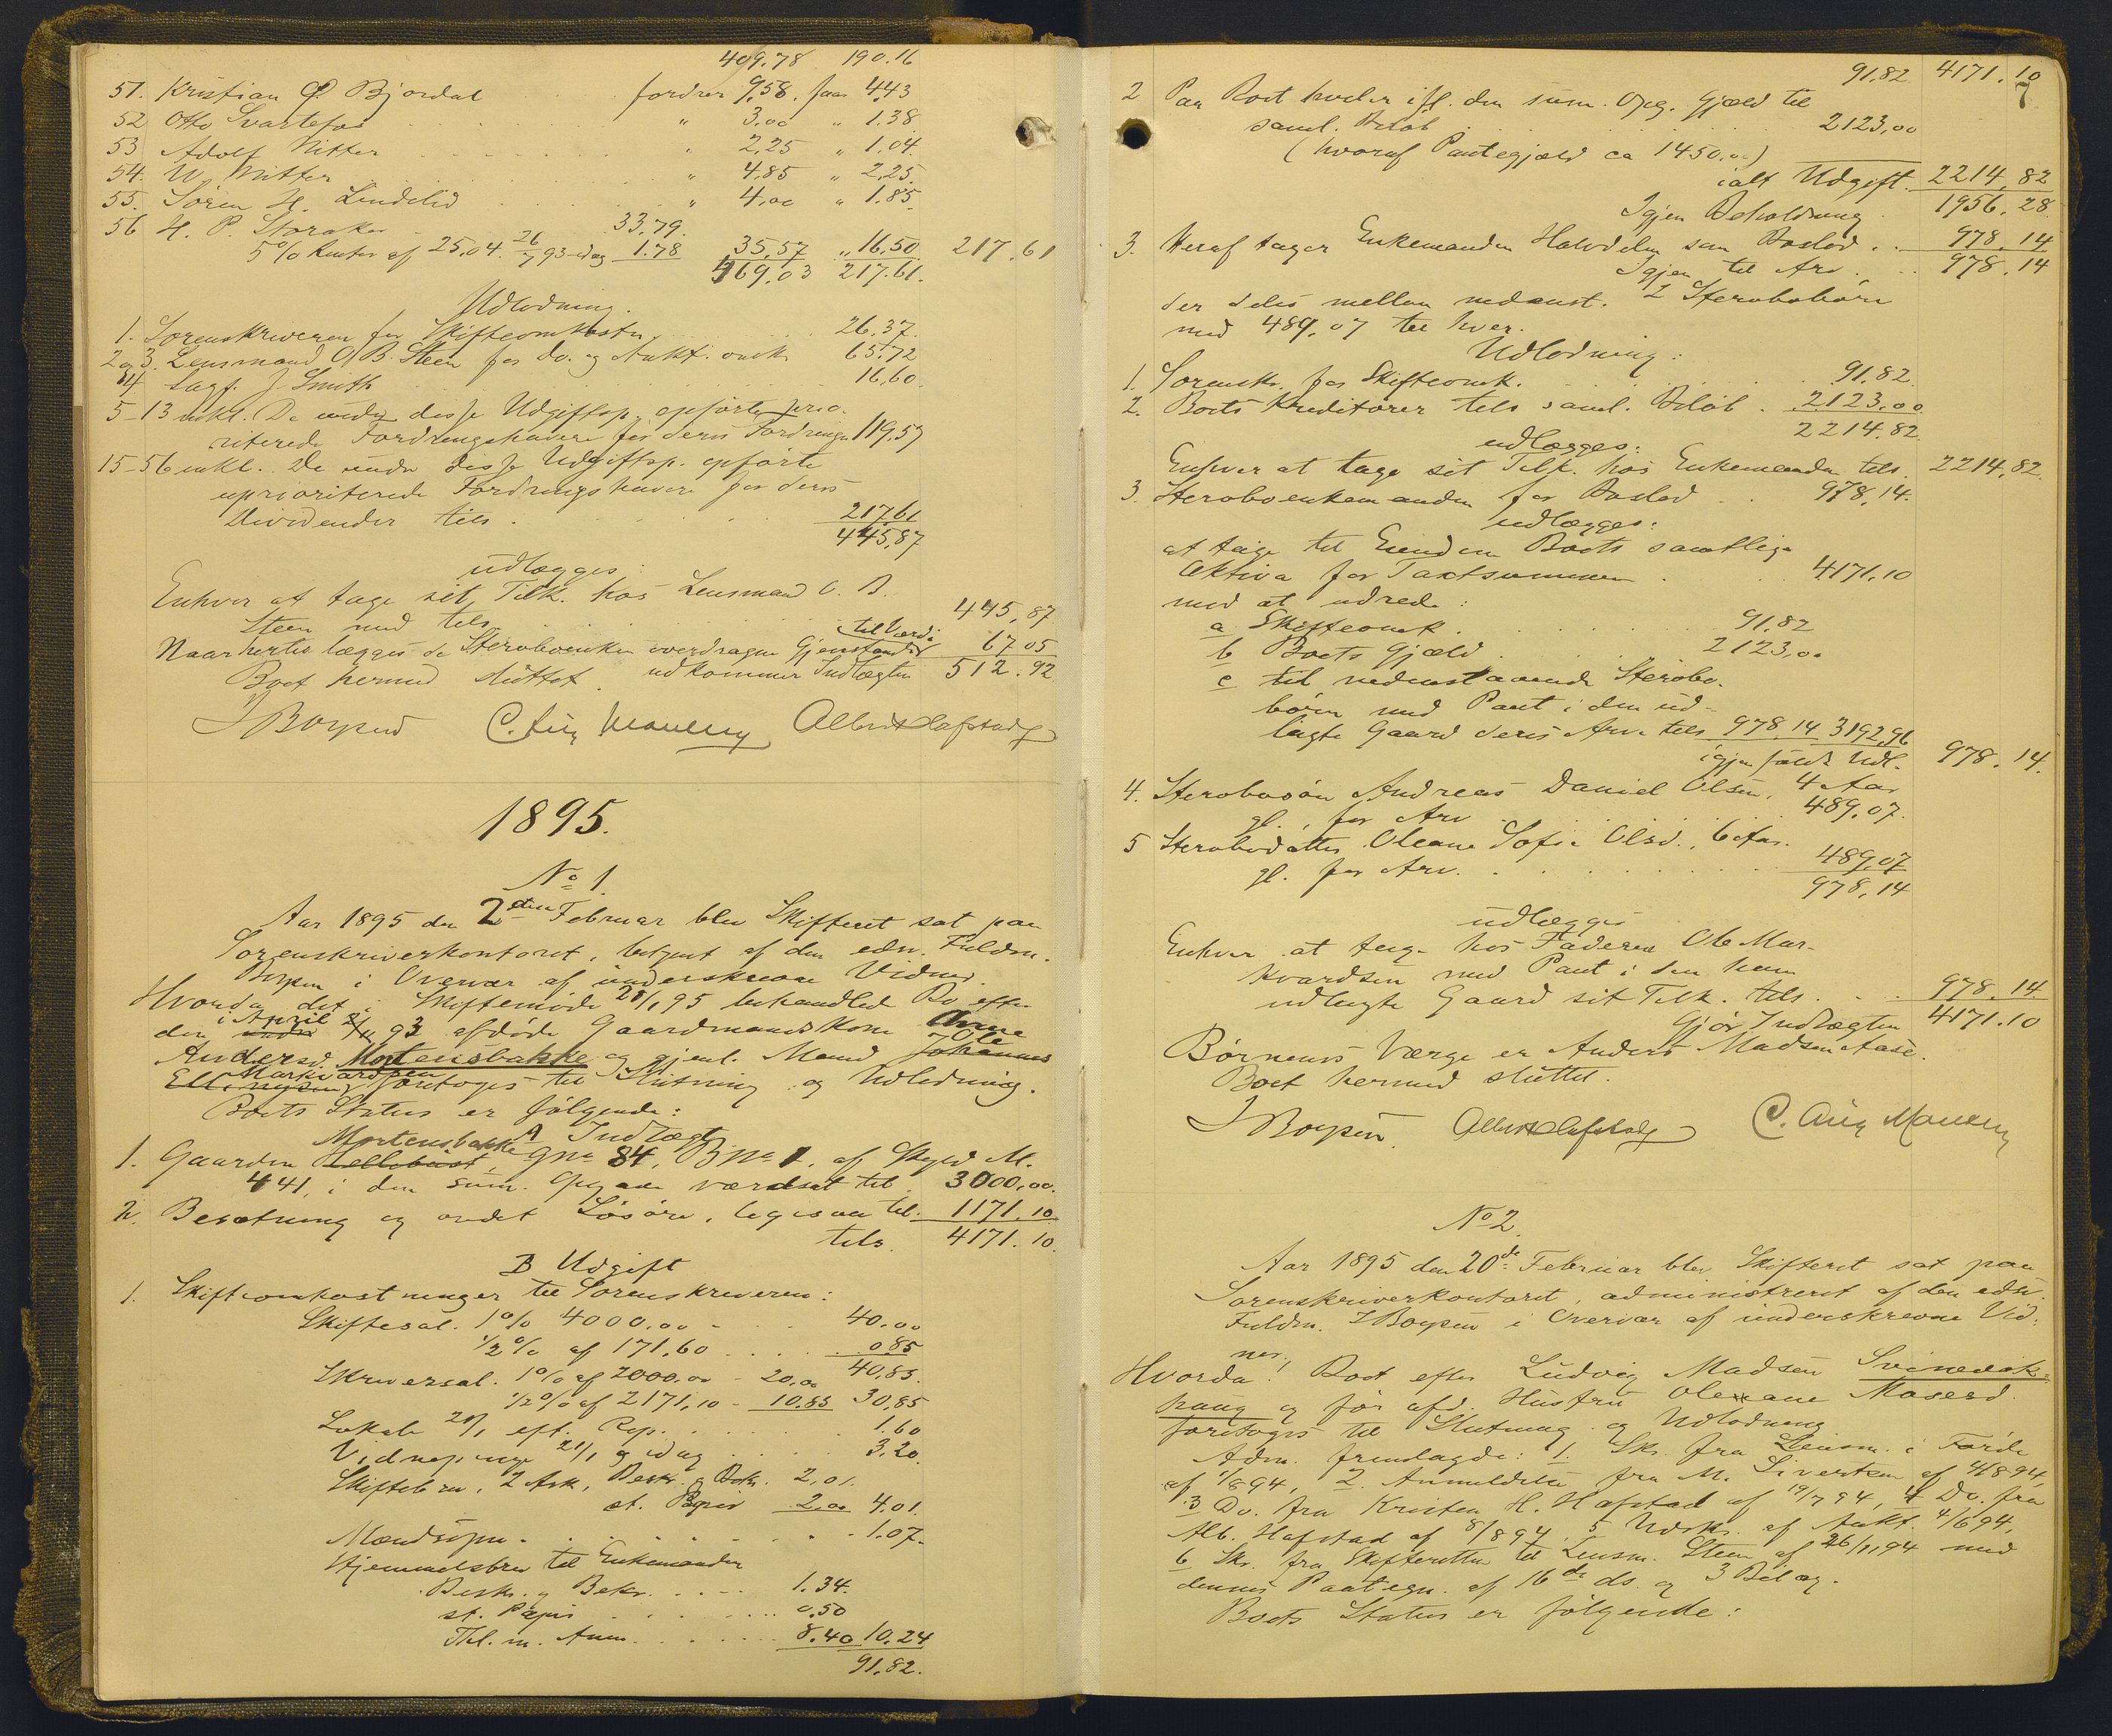 409.78 190.16
51. Kristian O. Bjordal fordrer 9,58. faar 4.43
52 Otto Svartefos " 3.00 " 1.38
53 Adolf Nitter " 2,25 " 1.04.
54. W. Nitter " 4.85 " 2,25.
55. Søren H. Lindelid " 4,00 " 1.85
56 H. P. Storaker 33.79.
5% Renter af 25.04. 26/7 93 - idag 1.78 35,57 " 16.50 217.61
469,03 217.61.
Udlodning.
1. Sorenskriveren for Skifteomkostn. 26.37.
2 og 3. Lensmand O. B. Steen for do. og Aukt. omk. 65.72
4 Sagf. J. Smith 16,60.
5-13 inkl. De under disse Udgiftsp. opførte prio-
riterede Fordringshavere for deres Fordringer 119,57
15-56 inkl. De under disse Udgiftsp. opførte
uprioriterede Fordringshavere for deres
Dividender tils. 217.61
445,87
udlægges:
Enhver at tage sit Tilk. hos Lensmand O. B.
Steen med tils. 445,87
Naar hertil lægges de Sterboenken overdragne Gjenstande til Værdi 67 05
Boet hermed sluttet. udkommer Indtægten 512.92
J Boysen C. Aug Mowery Albert Hafstad
1895.
No 1.
Aar 1895 den 2den Februar blev Skifteret sat paa
Sorenskriverkontoret, betjent af den edsv. Fuldm.
Boysen i Overvær af underskrevne Vidner.
Hvorda det i Skiftemøde 28/1 95 behandlede Bo efter
den i April 93 afdøde Gaardmandskone Anne
Andersd. Mortensbakke og gjenl. Mand Ole Johannes
Markvardsen Ellingsen foretoges til Slutning og Udlodning.
Boets Status er følgende:
A Indtægt
1. Gaarden Mortensbakke Gno 84, Bno 1, af Skyld M.
4 41, i den sum. Opgave værdsat til 3000,00.
2. Besætning og andet Løsøre, ligesaa til 1171.10
tils. 4171.10.
B Udgift
1. Skifteomkostninger til Sorenskriveren:
Skiftesal. 1% 4000.00 - 40.00
1/2% af 171,60 0.85
40,85.
Skriversal. 1% af 2000.00 - 20,00
1/2% af 2171,10 - 10.85 30,85
Lokale 28/1 eft. Rep. 1.60
Vidnepenge 28/1 og idag 3.20.
Skiftebrev, 2 Ark, Beskr. og Bekr. 2,01.
st. Papir 2,00 4.01.
Mændsopn. 1.07.
Hjemmelsbrev til Enkemanden
Beskr. og Bekr. 1.34.
st. Papir 0.50
Thl. m. Anm. 8.40 10.24
91.82.
91.82 4171.10
7
2 Paa Boet hviler ifl. den sum. Opg. Gjæld til
saml. Beløb 2123,00
(hvoraf Pantegjæld ca 1450.00)
ialt Udgift. 2214,82
Igjen Beholdning 1956.28
3. Heraf tager Enkemanden Halvdelen som Boslod 978.14
Igjen til Arv 978.14
der deles mellem nedenst. 2 Sterbobørn
med 489,07 til hver.
Udlodning:
1. Sorenskr. for Skifteomk. 91,82.
2. Boets Kreditorer tils saml. Beløb 2123,00
2214.82
udlægges:
Enhver at tage sit Tilk. hos Enkemanden tils. 2214,82.
3. Sterboenkemanden for Boslod 978,14.
udlægges:
at tage til Eiendom Boets samtlige
Aktiva for Taxtsummen 4171,10
mod at udrede:
a Skifteomk. 91,82
b Boets Gjæld 2123,00
c til nedenstaaende Sterbo-
børn med Pant i den ud-
lagte Gaard deres Arv tils 978,14 3192,96
igjen for Udl. 978.14.
4. Sterbosøn Andreas Daniel Olsen, 4 Aar
gl., for Arv 489,07.
5 Sterbodatter Oleane Sofie Olsd., 6 Aar.
gl. for Arv. 489,07
978,14
udlægges
Enhver at tage hos Faderen Ole Mar-
kvardsen med Pant i den ham
udlagte Gaard sit Tilk. tils. 978.14.
Gjør Indtægten 4171.10
Børnenes Værge er Anders Madsen Aase.
Boet hermed sluttet.
J Boysen Albert Hafstad C. Aug Mowery
No 2.
Aar 1895 den 20de Februar blev Skifteret sat paa
Sorenskriverkontoret, administreret af den edsv.
Fuldm. J Boysen i Overvær af underskrevne Vid-
ner,
Hvorda! Boet efter Ludvig Madsen Svinevik-
haug og før afd. Hustru Oleane Mosesd.
foretoges til Slutning og Udlodning
Adm. fremlagde: 1. Skr. fra Lensm. i Førde
af 1/8 94, 2. Anmeldelse fra M. Sivertsen af 4/8 94,
3 Do. fra Kristen H. Hafstad af 19/7 94, 4 Do. fra
Alb. Hafstad af 8/8 94, 5 Udskr. af Aukt. 4/6 94,
6 Skr. fra Skifteretten til Lensm. Steen af 26/11 94 med
dennes Paategn. af 16de ds. og 3 Bilag.
Boets Status er følgende: